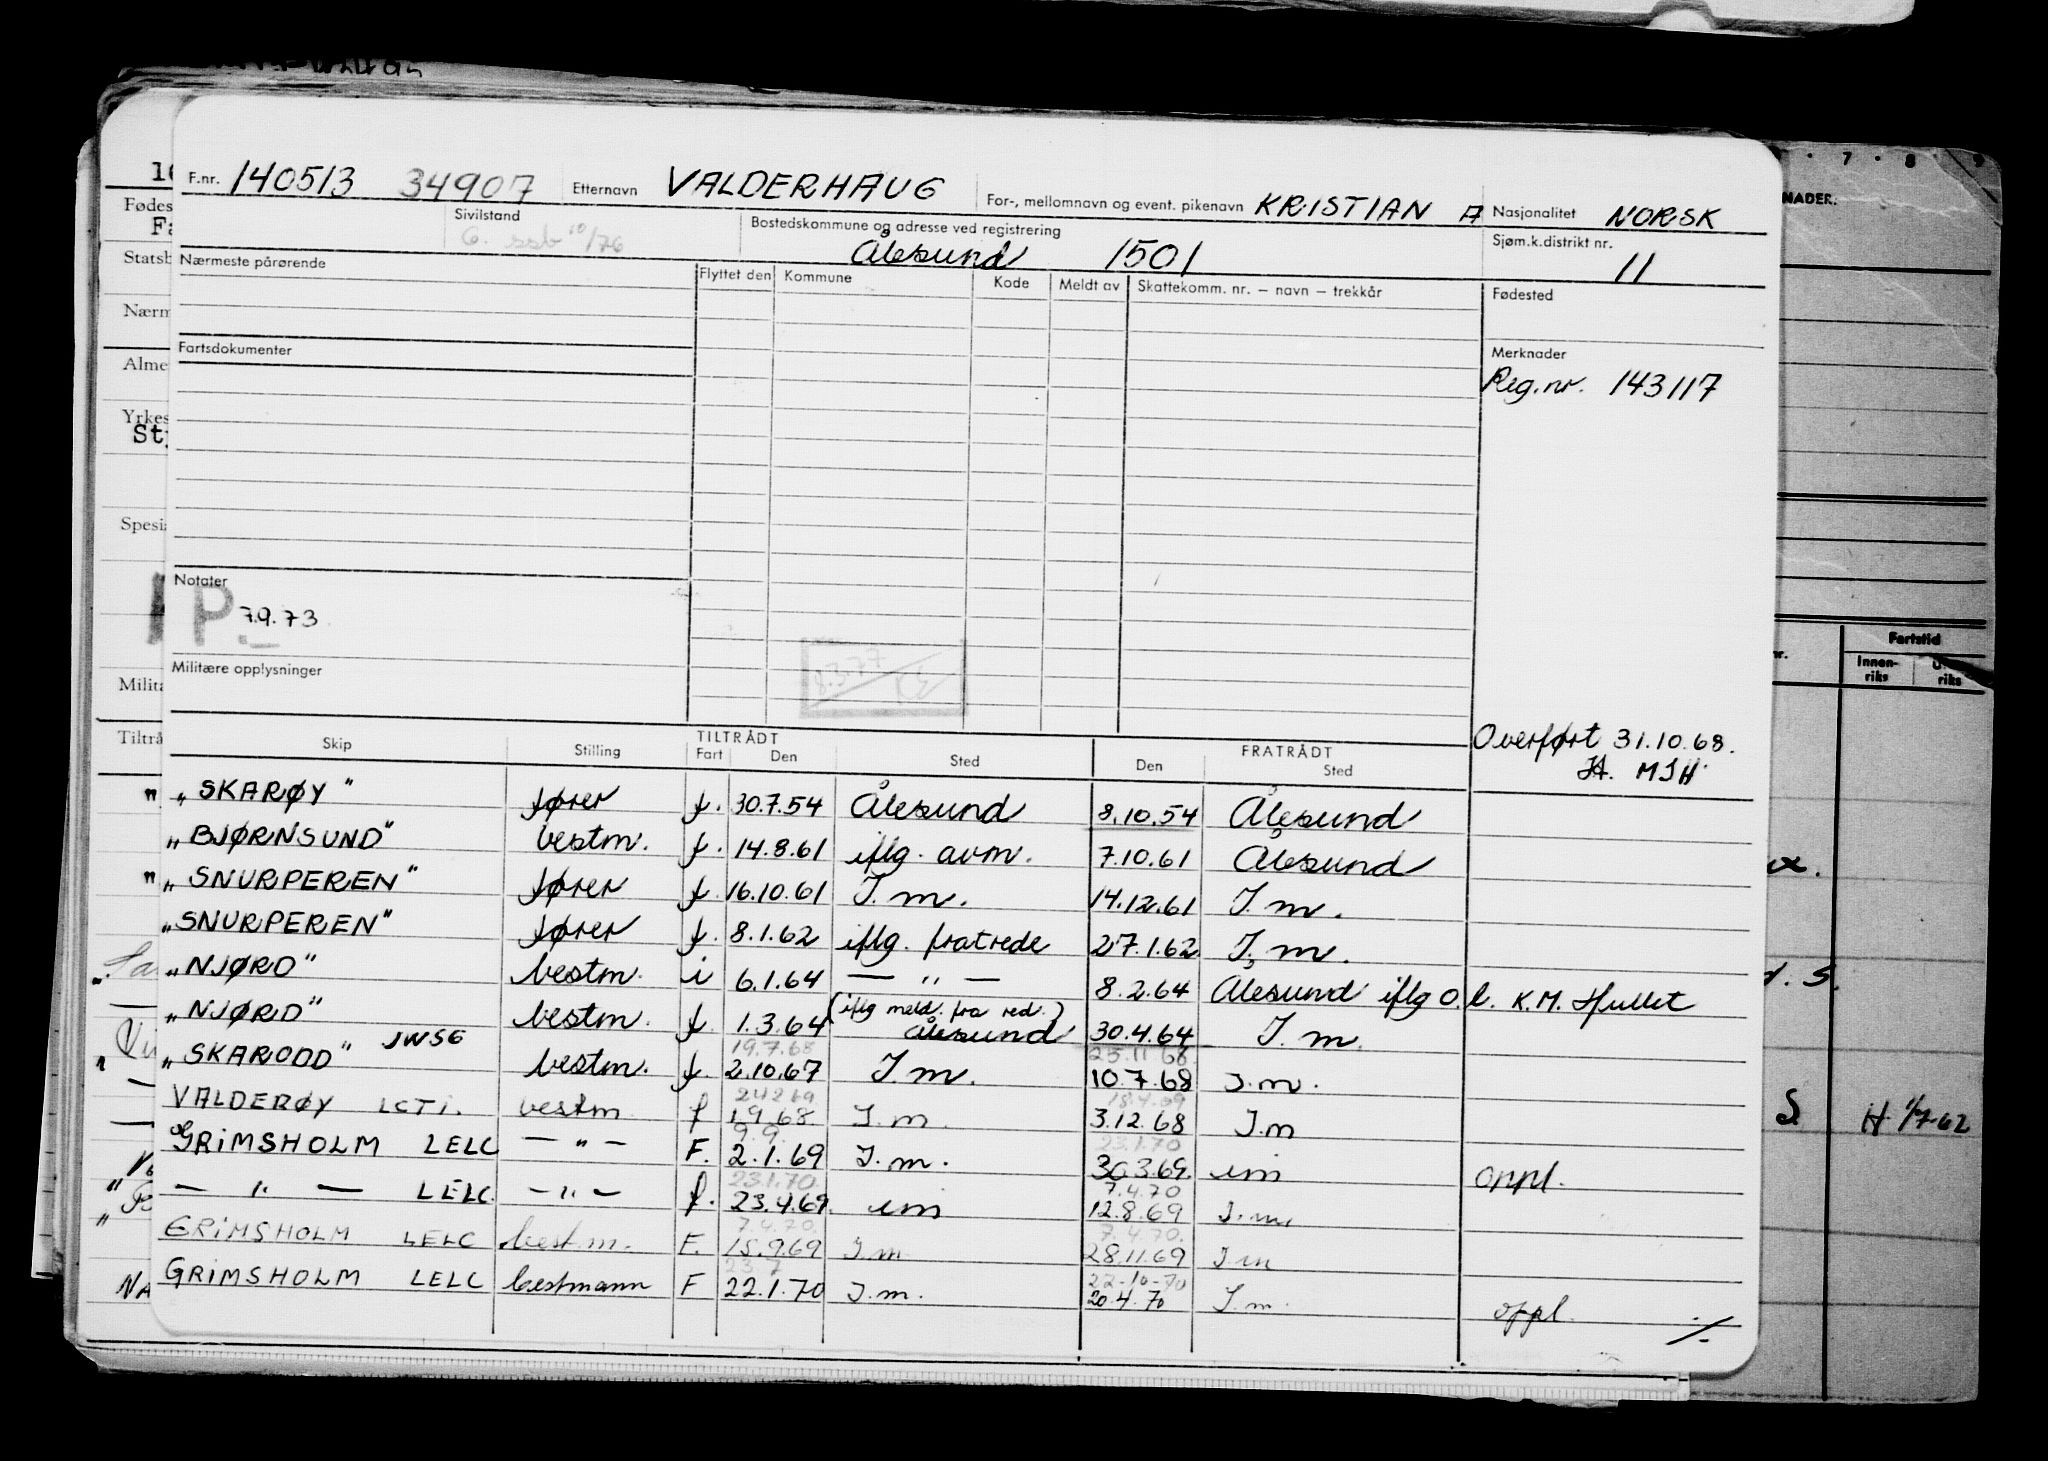 F.nr. 140513 34907 Etternavn VALDERHAUG For-, mellomnavn og event. pikenavn KRISTIAN A Nasjonalitet NORSK
Sivilstand G. ssb 10/76 Bostedskommune og adresse ved registrering Ålesund 1501 Sjøm.k.distrikt nr. 11
Nærmeste pårørende Flyttet den Kommune Kode Meldt av Skattekomm. nr. – navn – trekkår Fødested
Fartsdokumenter Merknader
Reg.nr. 143117
Notater
P 7.9.73
8.3.77
Militære opplysninger
Overført 31.10.68.
H. MSH
Skip Stilling TILTRÅDT Fart Den Sted FRATRÅDT Den Sted
" „SKARØY" fører f. 30.7.54 Ålesund 8.10.54 Ålesund
„BJØRNSUND" bestm. f. 14.8.61 iflg. avm. 7.10.61 Ålesund
" „SNURPEREN" fører f. 16.10.61 I.m. 14.12.61 I.m.
„SNURPEREN" fører f. 8.1.62 iflg. fratrede 27.1.62 I.m.
„NJØRD" bestm. i 6.1.64 — " — 8.2.64 Ålesund iflg o.l. K.M. Hullet
„NJØRD" bestm. f. 1.3.64 (iflg meld. fra red.) Ålesund 30.4.64 I.m.
19.7.68 25.11.68
„SKARODD" JWSG bestm. f. 2.10.67 I.m. 10.7.68 I.m.
24.2.69 18.4.69
VALDERØY LCTI. bestm. f 1.9.68 I.m. 3.12.68 I.m
9.9. 23.1.70
GRIMSHOLM LELC — " — F. 2.1.69 I.m. 30.3.69. im oppl.
23.1.70. 7.4.70
— " — LELC. — " — f. 23.4.69. im 12.8.69 I.m.
7.4.70. 7.4.70.
GRIMSHOLM LELC best.m. F. 15.9.69 I.m 28.11.69 I m
23.7 22-10-70
GRIMSHOLM LELC bestmann F 22.1.70 I.m. 20.4.70 I.m. oppl.
Fødes
Statsb
Nærm
Alme
Yrkes
Spesia
Milita
Tiltrå
7 8 9
NADER.
Fartstid
Innen-riks
riks
S H 1/7-62